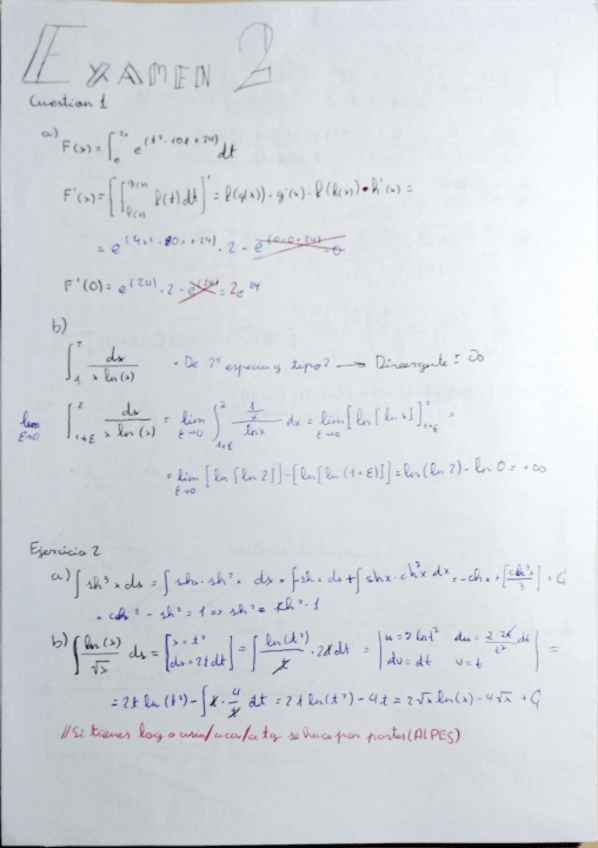 EXAMEN 2
Cuestion 1
a) F(x) = ∫₀²ˣ e^(t² - 10t + 24) dt
F'(x) = [∫_{h(x)}^{g(x)} f(t) dt]' = f(g(x)) · g'(x) - f(h(x)) · h'(x) =
= e^(4x² - 20x + 24) · 2 - e^(0-0+24) · 0
F'(0) = e^(24) · 2 - e^(24) = 2e^24
b)
∫₁² dx / (x ln(x)) · De 2ª especie y tipo 2 → Divergente = ∞
lim ε→0 ∫_{1+ε}^{2} dx / (x ln(x)) = lim ε→0 ∫_{1+ε}^{2} (1/x) / lnx dx = lim ε→0 [ln[lnx]]_{1+ε}^{2} =
= lim ε→0 [ln[ln 2]] - [ln[ln(1+ε)]] = ln(ln 2) - ln 0 = +∞
Ejercicio 2
a) ∫ sh³x dx = ∫ shx · sh²x dx = ∫ shx dx + ∫ shx · ch²x dx = -chx + [ch³x / 3] + C
· ch² - sh² = 1 ⇒ sh² = ch² - 1
b) ∫ ln(x) / √x dx = [x = t² dx = 2t dt] = ∫ ln(t²) / t · 2t dt = | u = 2 ln t² du = 2 · 2t / t² dt dv = dt v = t | =
= 2t ln(t²) - ∫ t · 4 / t dt = 2t ln(t²) - 4t = 2√x ln(x) - 4√x + C
// Si tienes log o asin/acos/atg se hace por partes (ALPES)